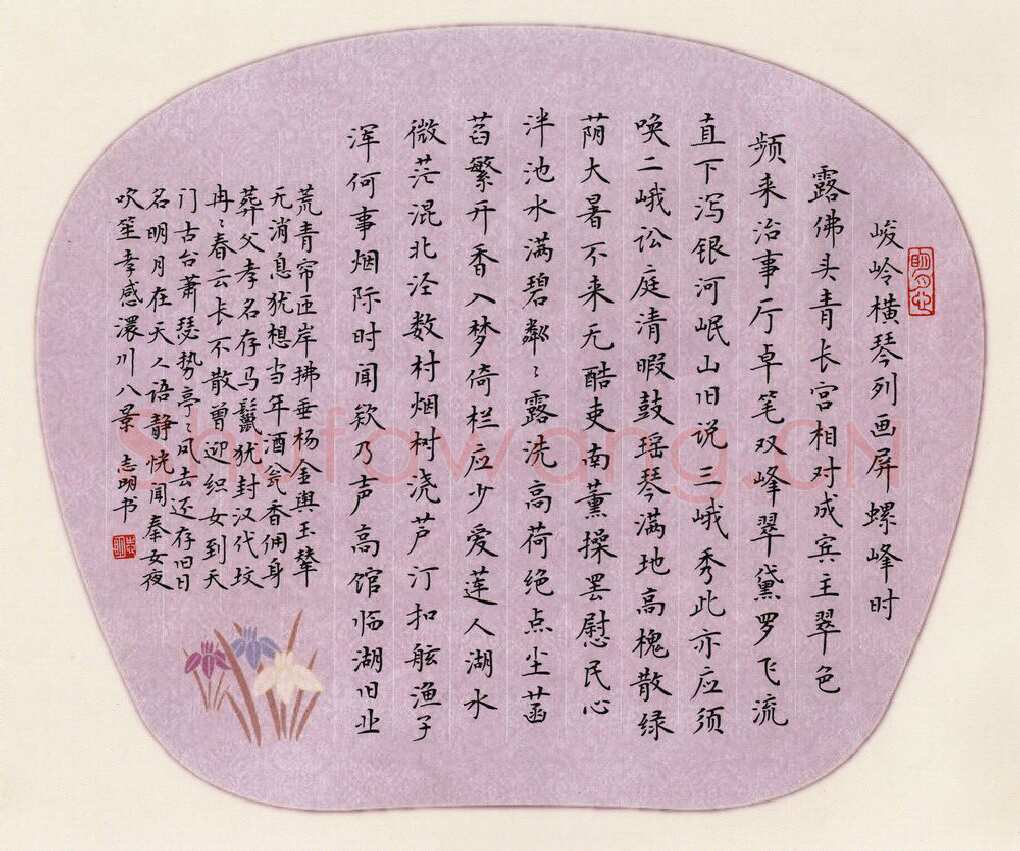 峻岭横琴列画屏螺峰时
露佛头青长宫相对成宾主翠色
频来治事厅卓笔双峰翠黛罗飞流
直下泻银河岷山旧说三峨秀此亦应须
唤二峨讼庭清暇鼓瑶琴满地高槐散绿
荫大暑不来无酷吏南薰操罢慰民心
泮池水满碧粼〻露洗高荷绝点尘菡
萏繁开香入梦倚栏应少爱莲人湖水
微茫混北泾数村烟树浇芦汀扣舷渔子
浑何事烟际时闻欸乃声高馆临湖旧业
荒青帘匝岸拂垂杨金舆玉辇
无消息犹想当年酒瓮香佣身
葬父孝名存马鬣犹封汉代坟
冉〻春云长不散曾迎织女到天
门古台萧瑟势亭〻凤去还存旧日
名明月在天人语静恍闻秦女夜
吹笙孝感澴川八景 志明书
Shufawang.CN